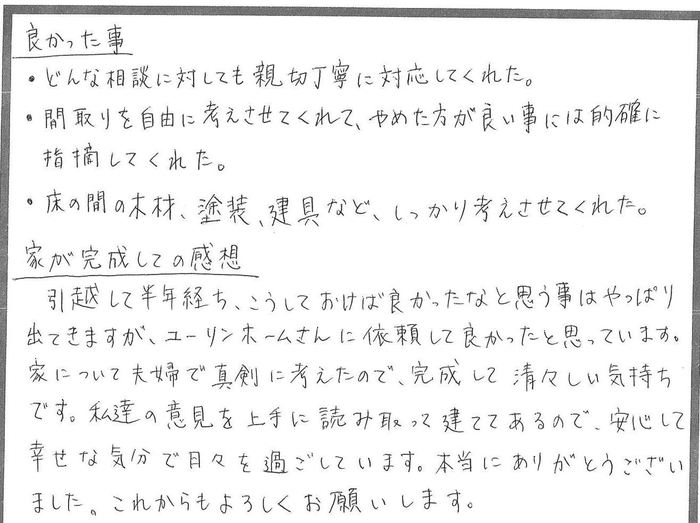 良かった事
・どんな相談に対しても親切丁寧に対応してくれた。
・間取りを自由に考えさせてくれて、やめた方が良い事には的確に
指摘してくれた。
・床の間の木材、塗装、建具など、しっかり考えさせてくれた。
家が完成しての感想
引越して半年経ち、こうしておけば良かったなと思う事はやっぱり
出てきますが、ユーリンホームさんに依頼して良かったと思っています。
家について夫婦で真剣に考えたので、完成して清々しい気持ち
です。私達の意見を上手に読み取って建ててあるので、安心して
幸せな気分で日々を過ごしています。本当にありがとうござい
ました。これからもよろしくお願いします。